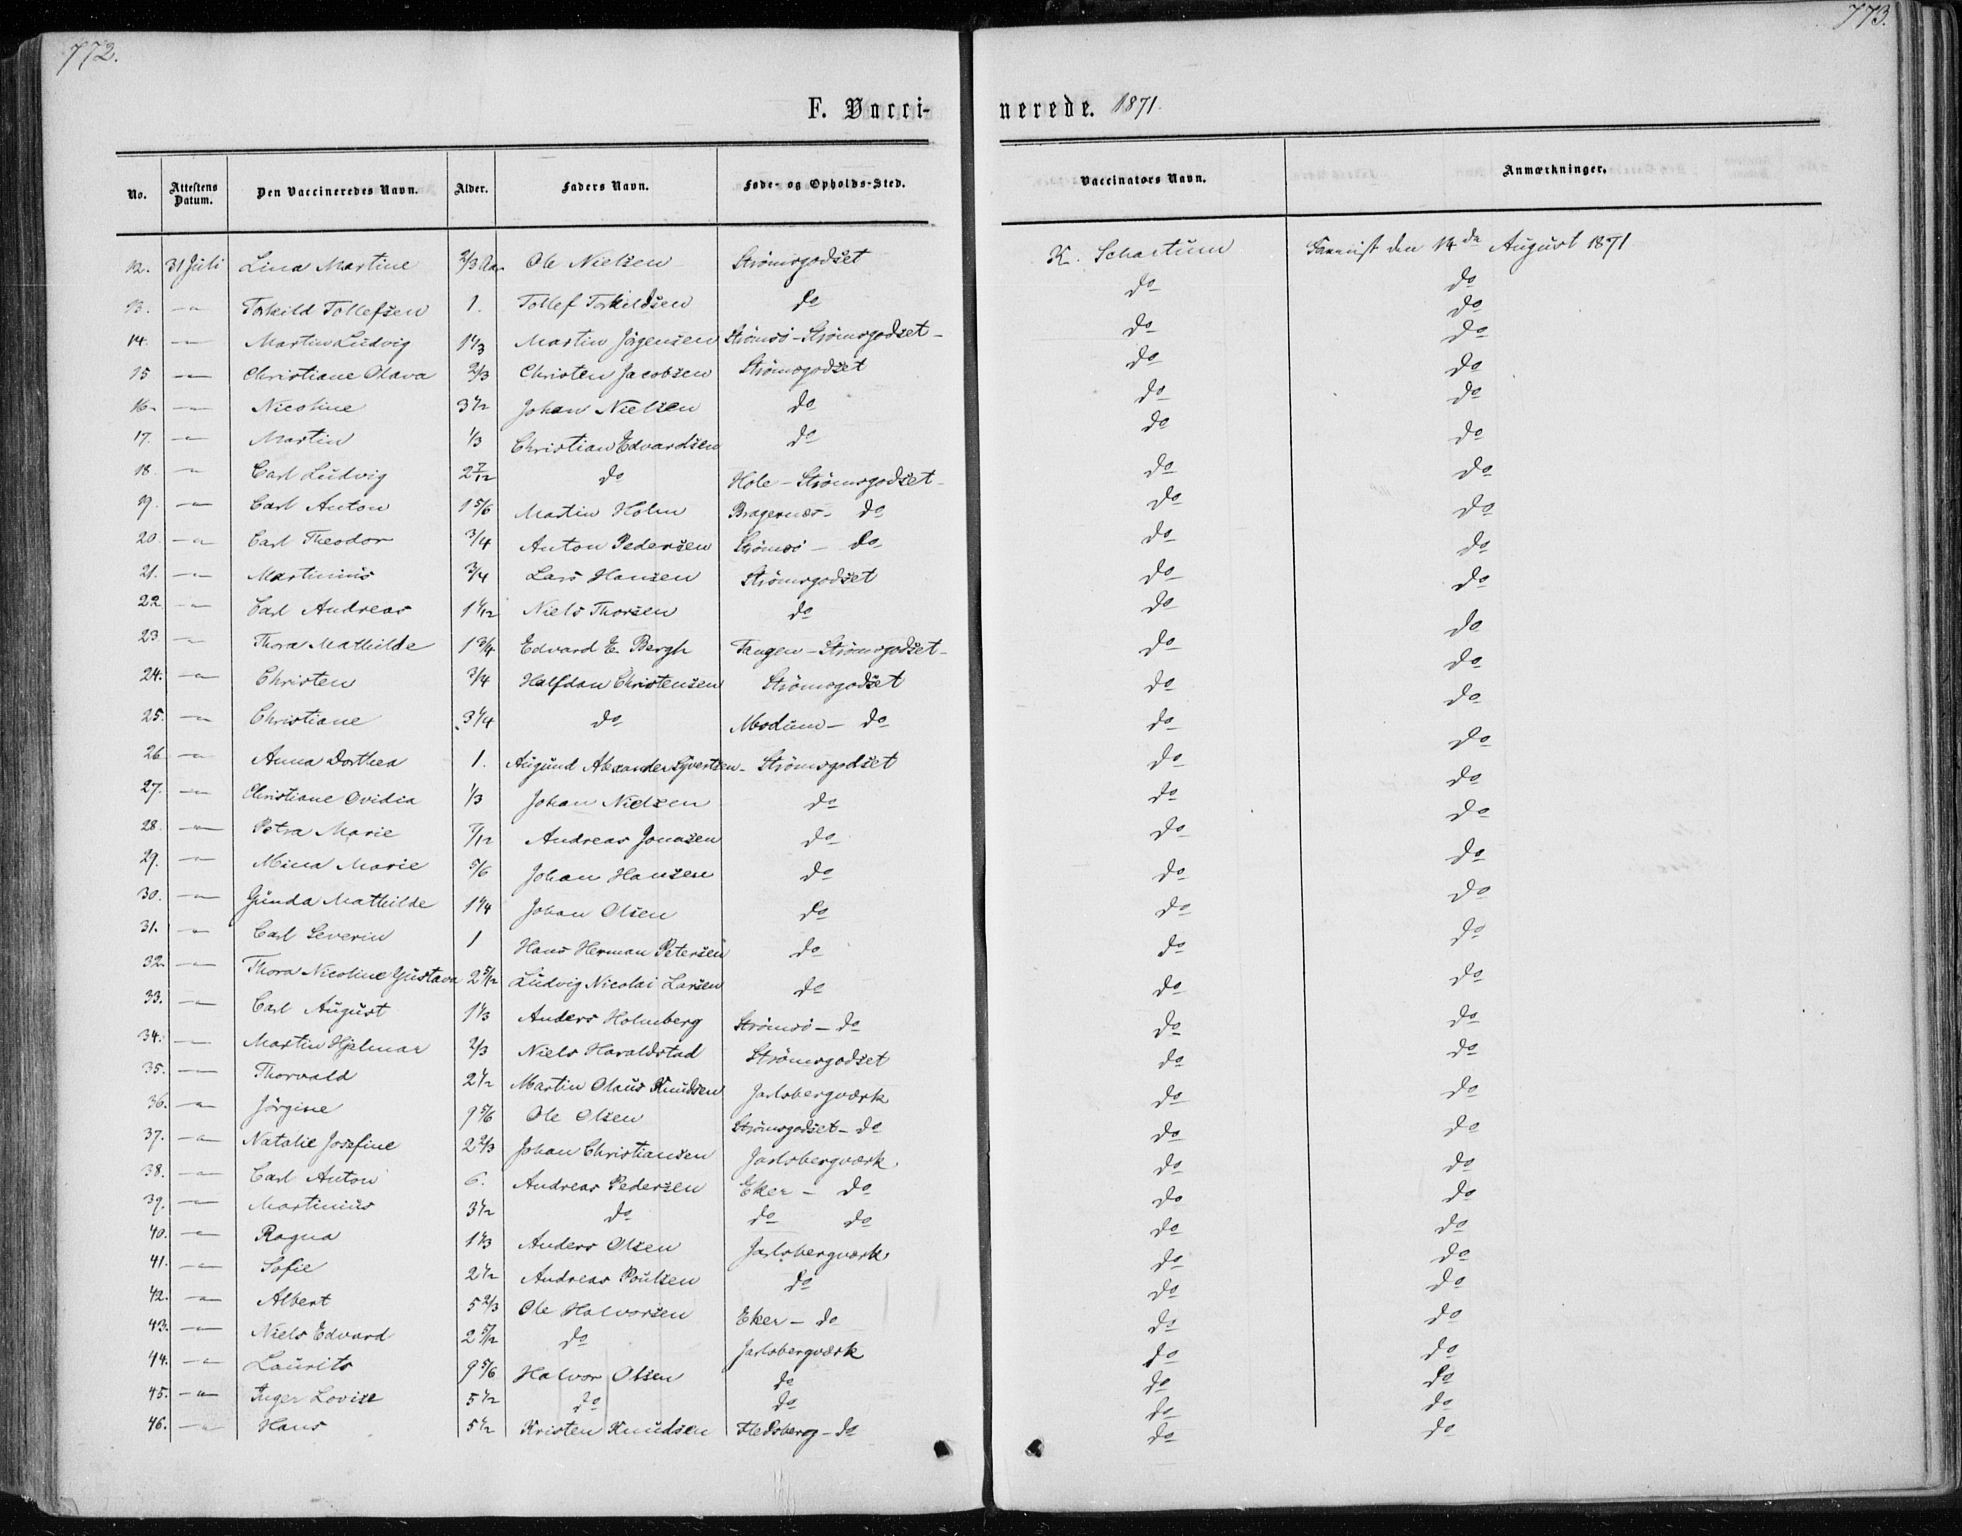 772.
773.
F. Vacci-
nerede. 1871.
No. Attestens Datum. Den Vaccineredes Navn. Alder. Faders Navn. Føde- og Opholds-Sted. Vaccinators Navn. Anmærkninger.
12. 31 Juli Lina Martine 2/3 Aar Ole Nielsen Strömsgodset K. Schartum den 14de August 1871
13. —"— Torkild Tollefsen 1. Tollef Torkildsen do do do
14. —"— Martin Ludvig 1 1/3 Martin Jörgensen Strömsö - Strömsgodset - do do
15 —"— Christiane Olava 2/3 Christen Jacobsen Strömsgodset do do
16. —"— Nicoline 3 1/2 Johan Nielsen do do do
17. —"— Martin 1/3 Christian Edvardsen do do do
18. —"— Carl Ludvig 2 7/12 do Hole - Strömsgodset - do do
19. —"— Carl Anton 1 5/6 Martin Holm Bragernæs - do do do
20 —"— Carl Theodor 3/4 Anton Pedersen Strömsö - do do do
21. —"— Martinius 3/4 Lars Hansen Strömsgodset do do
22 —"— Carl Andreas 1 1/12 Niels Thorsen do do do
23 —"— Thora Mathilde 1 3/4 Edvard E. Bergh Tangen - Strömsgodset - do do
24. —"— Christen 3/4 Halfdan Christensen Strömsgodset do do
25. —"— Christiane 3 1/4 do Modum - do do do
26 —"— Anna Dorthea 1. Augund Alexander Syvertsen - Strömsgodset do do
27. —"— Christiane Ovidia 1/3 Johan Nielsen do do do
28. —"— Petra Marie 7/12 Andreas Jonasen do do do
29. —"— Mina Marie 5/6 Johan Hansen do do do
30. —"— Gunda Mathilde 1 1/4 Johan Olsen do do do
31. —"— Carl Severin 1 Hans Herman Petersen do do do
32. —"— Thora Nicoline Gustava 2 5/12 Ludvig Nicolai Larsen do do do
33. —"— Carl August 1 1/3 Anders Holmberg Strömsö - do do do
34. —"— Martin Hjalmar 2/3 Niels Haraldstad Strömsgodset do do
35. —"— Thorvald 2 1/2 Martin Olaus Knudsen Jarlsbergværk do do
36. —"— Jörgine 9 5/6 Ole Olsen Strömsgodset - do do do
37. —"— Natalie Josefine 2 2/3 Johan Christiansen Jarlsbergværk do do
38. —"— Carl Anton 6. Andreas Pedersen Eker - do do do
39. —"— Martinius 3 1/2 do do do do do
40. —"— Ragna 1 1/3 Anders Olsen Jarlsbergværk do do
41. —"— Sofie 2 1/2 Andreas Poulsen do do do
42. —"— Albert 5 2/3 Ole Halvorsen Eker - do do do
43. —"— Niels Edvard 2 5/12 do Jarlsbergværk do do
44. —"— Laurits 9 5/6 Halvor Olsen do do do
45. —"— Inger Lovise 5 1/2 do do do do
46. —"— Hans 5 1/2 Kristen Knudsen Flesberg - do do do